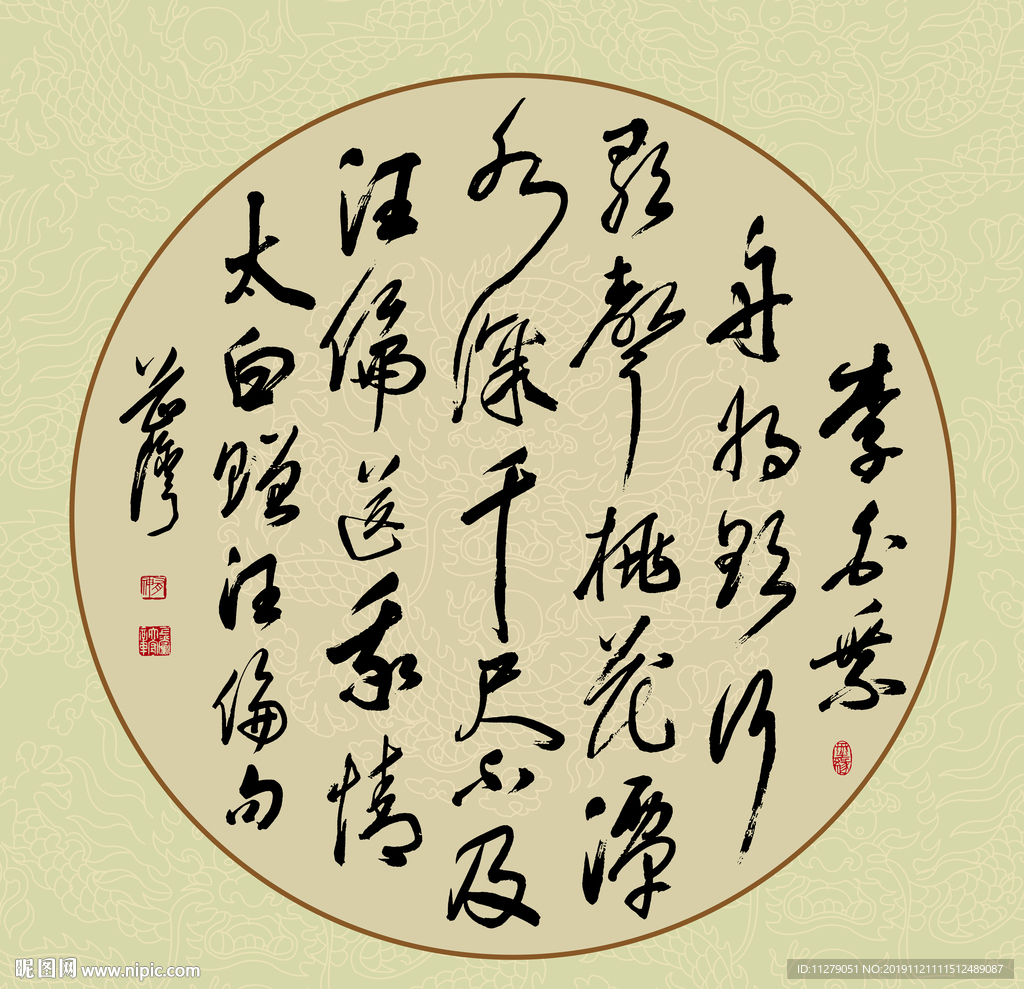 李白乘
舟將欲行
歌聲桃花潭
水深千尺不及
汪倫送我情
太白贈汪倫句
昵图网 www.nipic.com
ID:11279051 NO:20191121111512489087